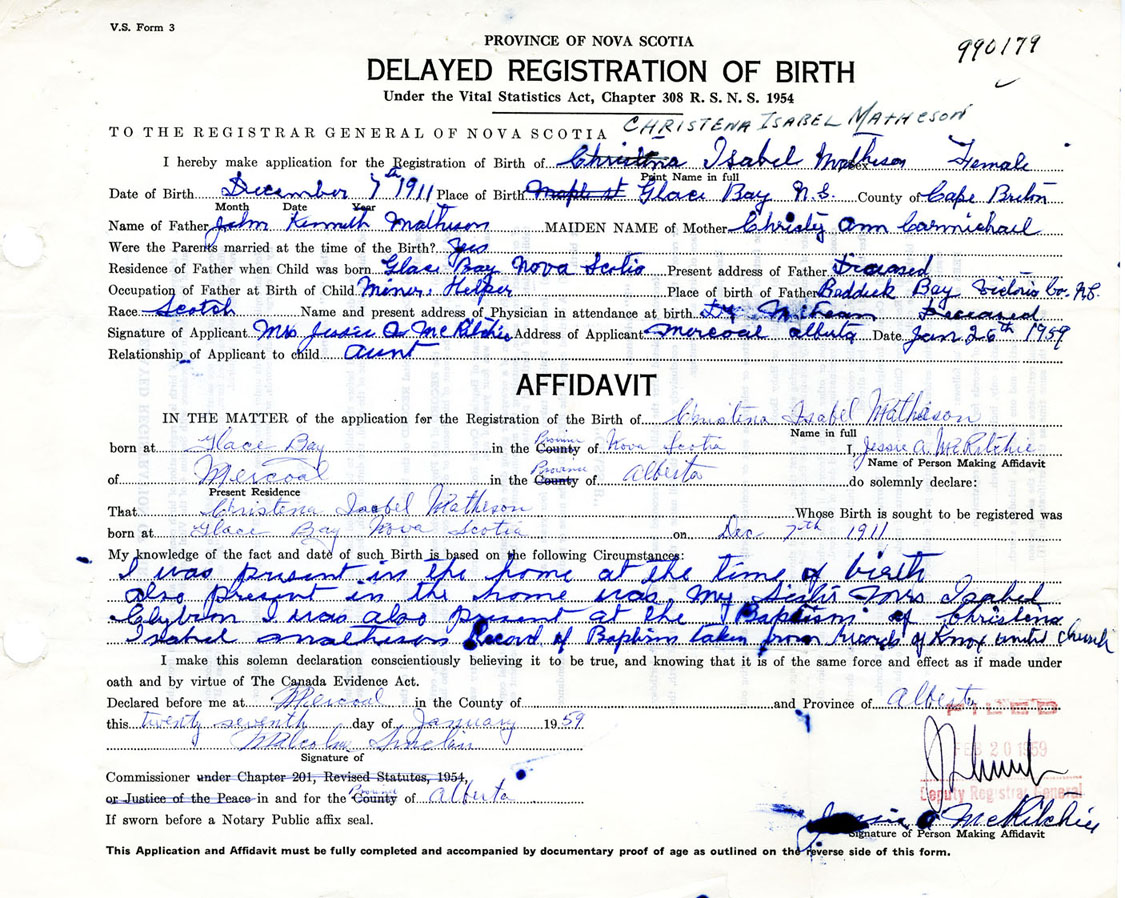 V.S. Form 3
PROVINCE OF NOVA SCOTIA
990179
DELAYED REGISTRATION OF BIRTH
Under the Vital Statistics Act, Chapter 308 R. S. N. S. 1954
CHRISTENA ISABEL MATHESON
TO THE REGISTRAR GENERAL OF NOVA SCOTIA
I hereby make application for the Registration of Birth of Christina Isabel Matheson Sex Female
Print Name in full
Date of Birth December 7th 1911 Place of Birth Maple st Glace Bay N.S. County of Cape Breton
Month Date Year
Name of Father John Kenneth Matheson MAIDEN NAME of Mother Christy Ann Carmichael
Were the Parents married at the time of the Birth? Yes
Residence of Father when Child was born Glace Bay Nova Scotia Present address of Father Deceased
Occupation of Father at Birth of Child Miner: Helper Place of birth of Father Baddeck Bay Victoria Co. N.S.
Race Scotch Name and present address of Physician in attendance at birth Dr. Deceased
Signature of Applicant Mrs Jessie A McRitchie Address of Applicant Mercoal Alberta Date Jan 26th 1959
Relationship of Applicant to child aunt
AFFIDAVIT
IN THE MATTER of the application for the Registration of the Birth of Christena Isabel Matheson
Name in full
born at Glace Bay in the Province County of Nova Scotia I, Jessie A. McRitchie
Name of Person Making Affidavit
of Mercoal in the Province County of Alberta do solemnly declare:
Present Residence
That Christena Isabel Matheson Whose Birth is sought to be registered was
born at Glace Bay Nova Scotia on Dec 7th 1911
My knowledge of the fact and date of such Birth is based on the following Circumstances:
I was present in the home at the time of birth
also present in the home was my Sister Mrs Isabel
Clybron I was also present at the Baptism of Christena
Isabel Matheson Record of Baptism taken from records of Knox United Church
I make this solemn declaration conscientiously believing it to be true, and knowing that it is of the same force and effect as if made under
oath and by virtue of The Canada Evidence Act.
Declared before me at Mercoal in the County of and Province of Alberta
this twenty seventh day of January 19 59
FILED
Malcolm Sinclair
FEB 20 1959
Signature of
Commissioner under Chapter 201, Revised Statutes, 1954,
Deputy Registrar General
or Justice of the Peace in and for the Province County of Alberta
If sworn before a Notary Public affix seal.
Jessie A McRitchie
Signature of Person Making Affidavit
This Application and Affidavit must be fully completed and accompanied by documentary proof of age as outlined on the reverse side of this form.